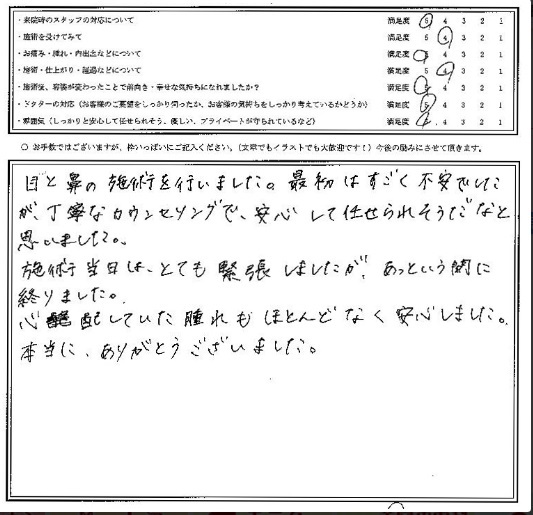 ・来院時のスタッフの対応について 満足度 5 4 3 2 1
・施術を受けてみて 満足度 5 4 3 2 1
・お痛み・腫れ・内出血などについて 満足度 5 4 3 2 1
・施術・仕上がり・経過などについて 満足度 5 4 3 2 1
・施術後、容姿が変わったことで前向き・幸せな気持ちになれましたか? 満足度 5 4 3 2 1
・ドクターの対応(お客様のご要望をしっかり伺ったか、お客様の気持ちをしっかり考えているかどうか) 満足度 5 4 3 2 1
・雰囲気(しっかりと安心して任せられそう、優しい、プライベートが守られているなど) 満足度 5 4 3 2 1
○ お手数ではございますが、枠いっぱいにご記入ください。(文章でもイラストでも大歓迎です!)今後の励みにさせて頂きます。
目と鼻の施術を行いました。最初はすごく不安でした
が、丁寧なカウンセリングで、安心して任せられそうだなと
思いました。
施術当日は、とても緊張しましたが、あっという間に
終りました。
心配していた腫れもほとんどなく安心しました。
本当に、ありがとうございました。